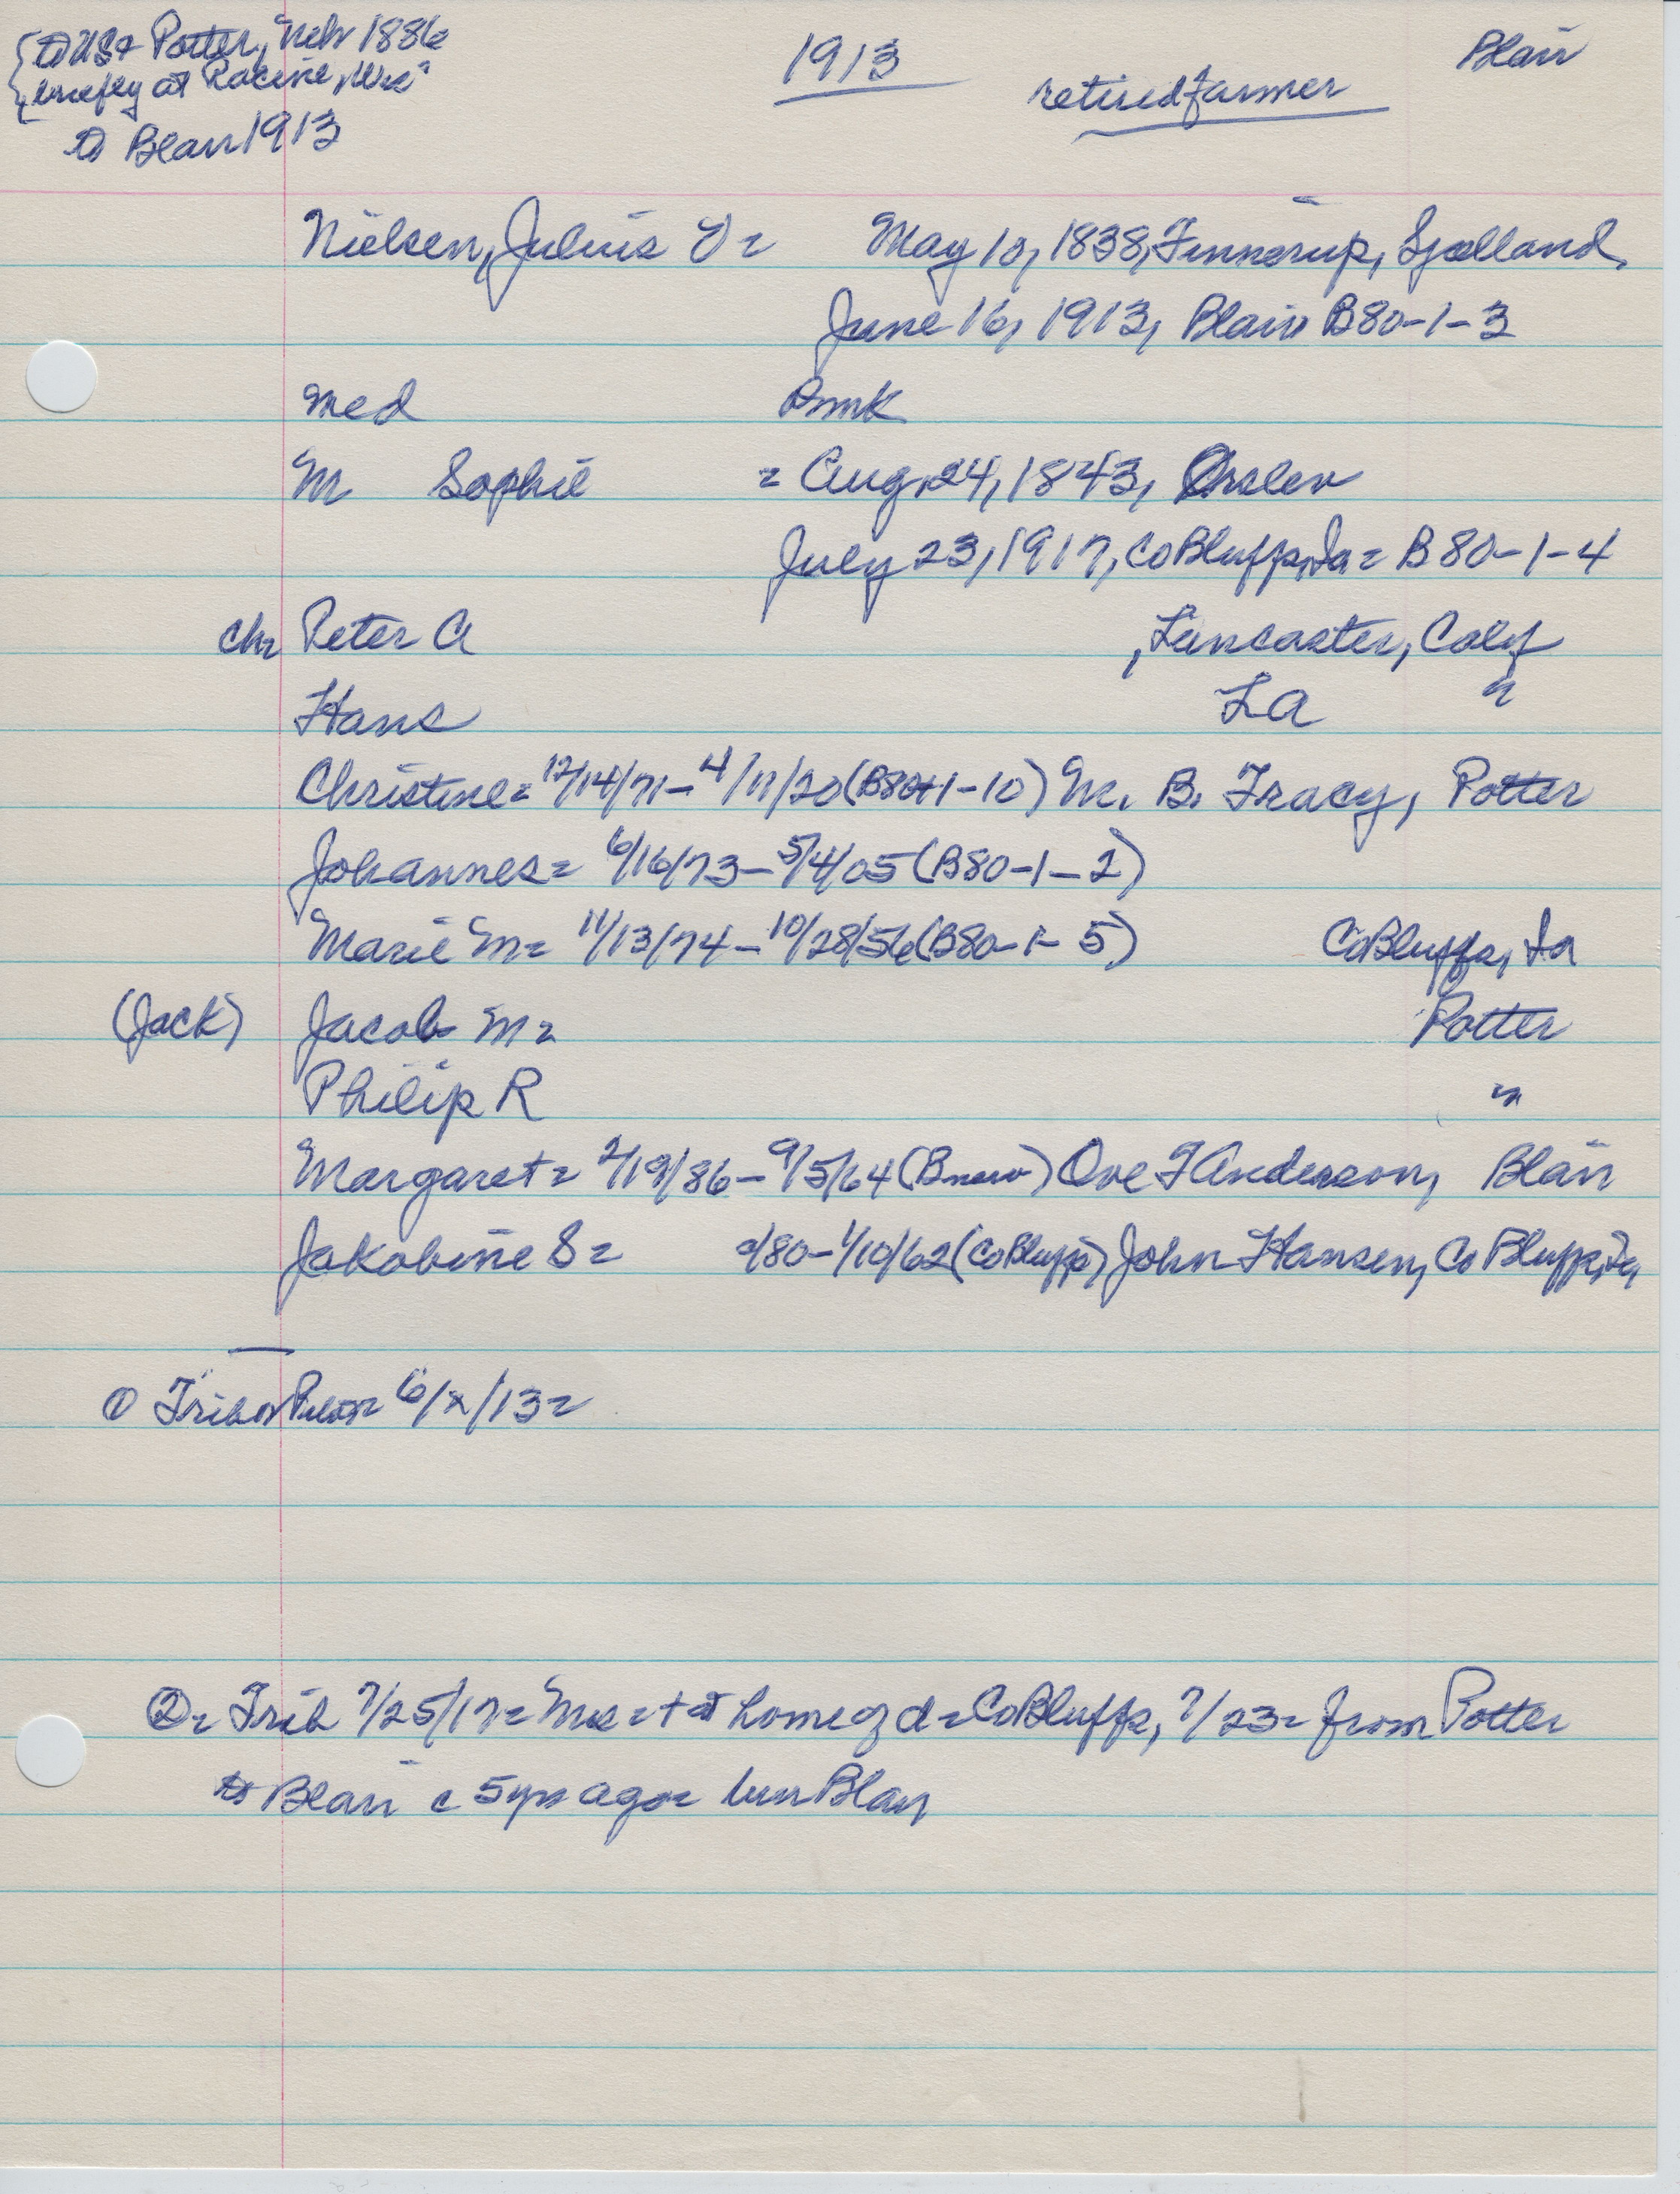 to US & Potter, Neb 1886
briefly at Racine, Wis
to Blair 1913
1913
retired farmer
Blair
Nielsen, Julius V = May 10, 1838, Finnerup, Sjælland,
June 16, 1913, Blair B80-1-3
med Dnmk
M Sophie = Aug. 24, 1843, Orslev
July 23, 1917, Co Bluffs, Ia = B80-1-4
Chn Peter A , Lancaster, Calif
Hans LA "
Christine = 12/14/71 - 4/11/20 (B80-1-10) M. B. Tracy, Potter
Johannes = 6/16/73 - 5/4/05 (B80-1-2)
Marie M = 11/13/74 - 10/28/56 (B80-1-5) Co Bluffs, Ia
(Jack) Jacob M = Potter
Philip R "
Margaret = 2/19/86 - 9/5/64 (B new) Ove F Anderson, Blair
Jakobine S = /80 - 1/10/62 (Co Bluffs) John Hansen, Co Bluffs, Ia,
① Trib or 6/x/13 =
② = Trib 7/25/17 = Mrs = + at home of d = Co Bluffs, 7/23 = from Potter
to Blair c 5 yrs ago = bur Blair